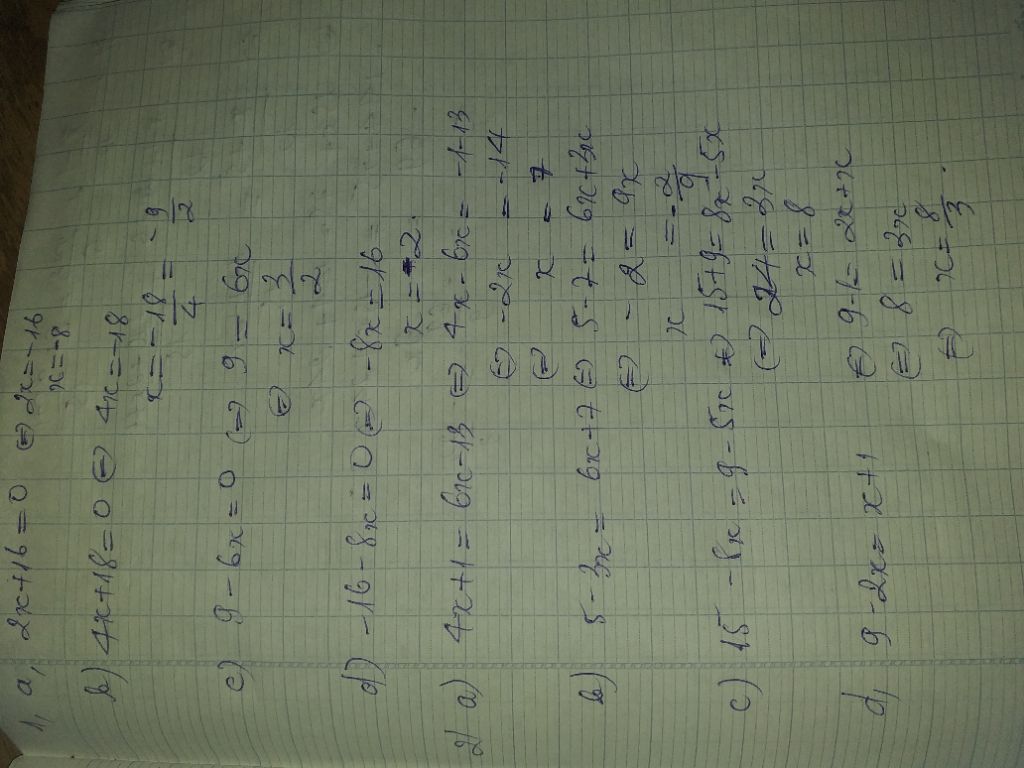 1, a, 2x+16=0 ⇔ 2x=-16
x=-8
b) 4x+18=0 ⇔ 4x=-18
x=-18/4=-9/2
c) 9-6x=0 ⇔ 9=6x
⇔ x=3/2
d) -16-8x=0 ⇔ -8x=16
x=-2.
2) a) 4x+1=6x-13 ⇔ 4x-6x=-1-13
⇔ -2x=-14
⇔ x=7
b) 5-3x=6x+7 ⇔ 5-7=6x+3x
⇔ -2=9x
x=-2/9
c) 15-8x=9-5x ⇔ 15+9=8x-5x
⇔ 24=3x
x=8
d, 9-2x=x+1 ⇔ 9-1=2x+x
⇔ 8=3x
⇔ x=8/3.